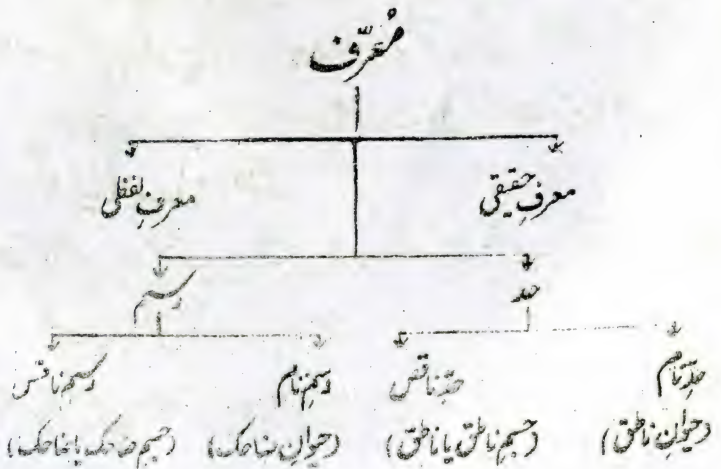 مُعَرِّف
معرفِ حقیقی معرفِ لفظی
حد رسم
حدِّ تام حدِّ ناقص رسمِ تام رسمِ ناقص
(حیوانِ ناطق) (جسمِ ناطق یا ناطق) (حیوانِ ضاحک) (جسمِ ضاحک یا ضاحک)